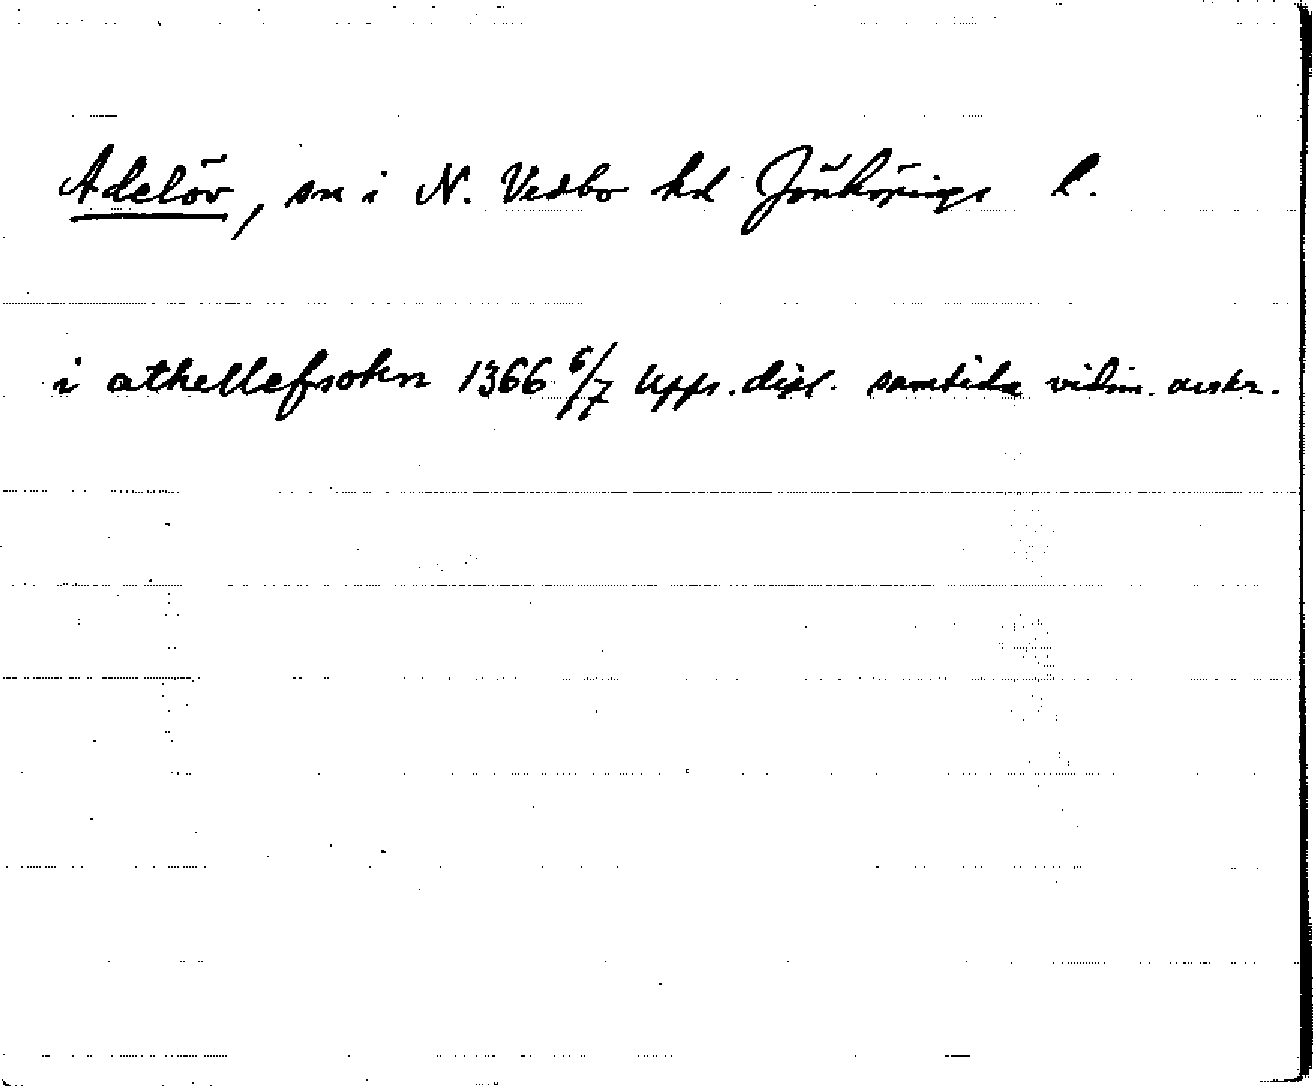 Adelöv, sn i N. Vedbo hd Jönköpings l.
i athellefsokn 1366 6/7 Upps. dipl. samtida vidim. avskr.